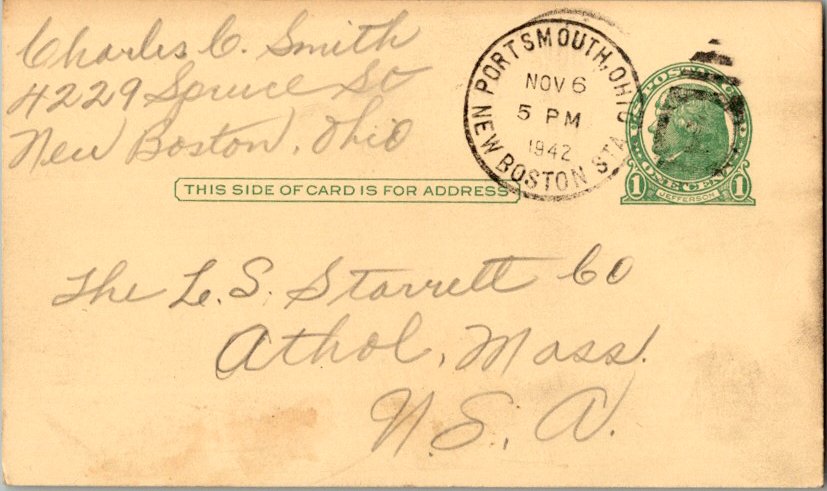 Charles C. Smith
4229 Spruce St
New Boston, Ohio
PORTSMOUTH, OHIO
NOV 6
5 PM
1942
NEW BOSTON STA.
U.S. POSTAL CARD
ONE CENT
1 JEFFERSON 1
THIS SIDE OF CARD IS FOR ADDRESS
The L. S. Starrett Co
Athol, Mass.
U. S. A.